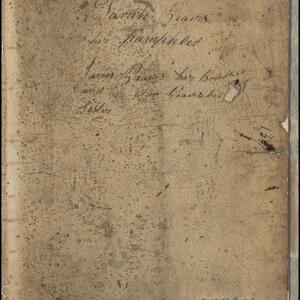 Sarah Reaves
her Pamphlet
James Reaves her Brother
and Reaves her
Sister